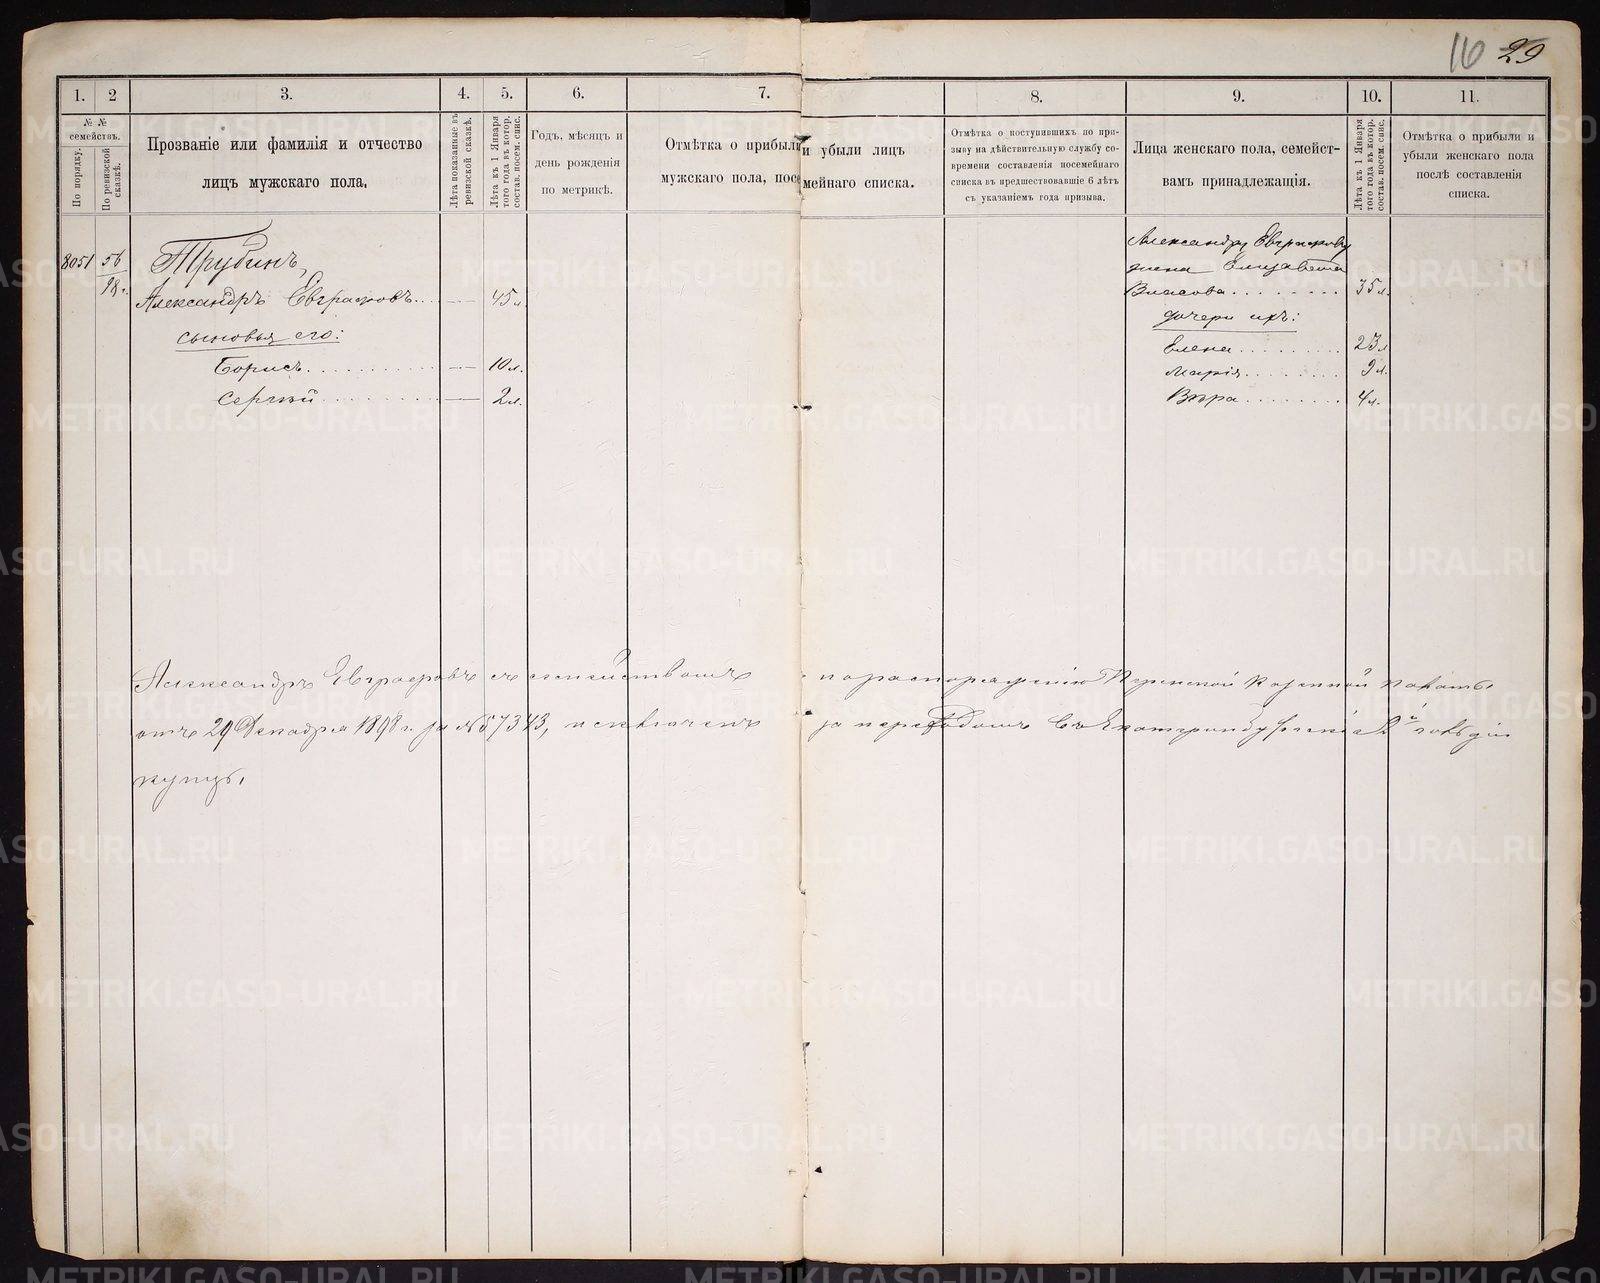 16 29
1. 2 3. 4. 5. 6. 7. 8. 9. 10. 11.
№ № семействъ.
По порядку.
По ревизской сказкѣ.
Прозваніе или фамилія и отчество
лицъ мужскаго пола.
Лѣта показанные въ
ревизской сказкѣ.
Лѣта къ 1 Января
того года въ котор.
состав. посем. спис.
Годъ, мѣсяцъ и
день рожденія
по метрикѣ.
Отмѣтка о прибыли и убыли лицъ
мужскаго пола, посемейнаго списка.
Отмѣтка о поступившихъ по при-
зыву на дѣйствительную службу со-
времени составленія посемейнаго
списка въ предшествовавшіе 6 лѣтъ
съ указаніемъ года призыва.
Лица женскаго пола, семейст-
вамъ принадлежащія.
Лѣта къ 1 Января
того года въ котор.
состав. посем. спис.
Отмѣтка о прибыли и
убыли женскаго пола
послѣ составленія
списка.
8051 56
98 г.
Трубинъ,
Александръ Евграфовъ... 45 л.
сыновья его:
Борисъ 10 л.
Сергѣй 2 л.
Александра Евграфова
жена Елизавета
Власова 35 л.
дочери ихъ:
Елена 23 л.
Марія 9 л.
Вѣра 4 л.
Александръ Евграфовъ съ семействомъ по распоряженію Пермской Казенной палаты
отъ 29 Декабря 1898 г. за № 57343, исключенъ за переходомъ въ Екатеринбургскіе 2й гильдіи
купцы.
METRIKI.GASO-URAL.RU